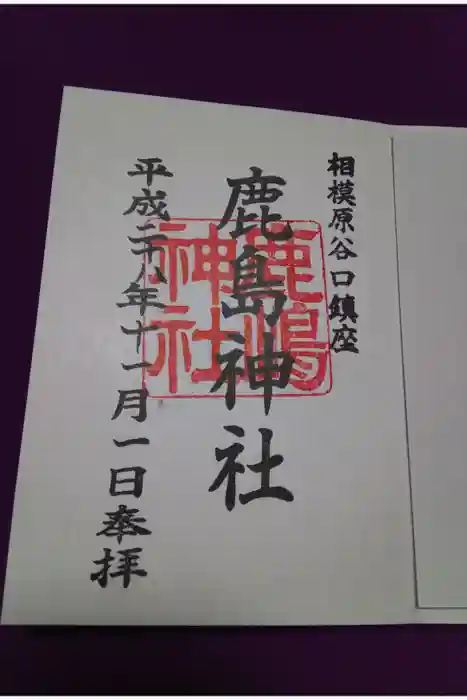 相模原谷口鎮座
鹿島神社
鹿嶋神社
平成二十八年十一月一日奉拝